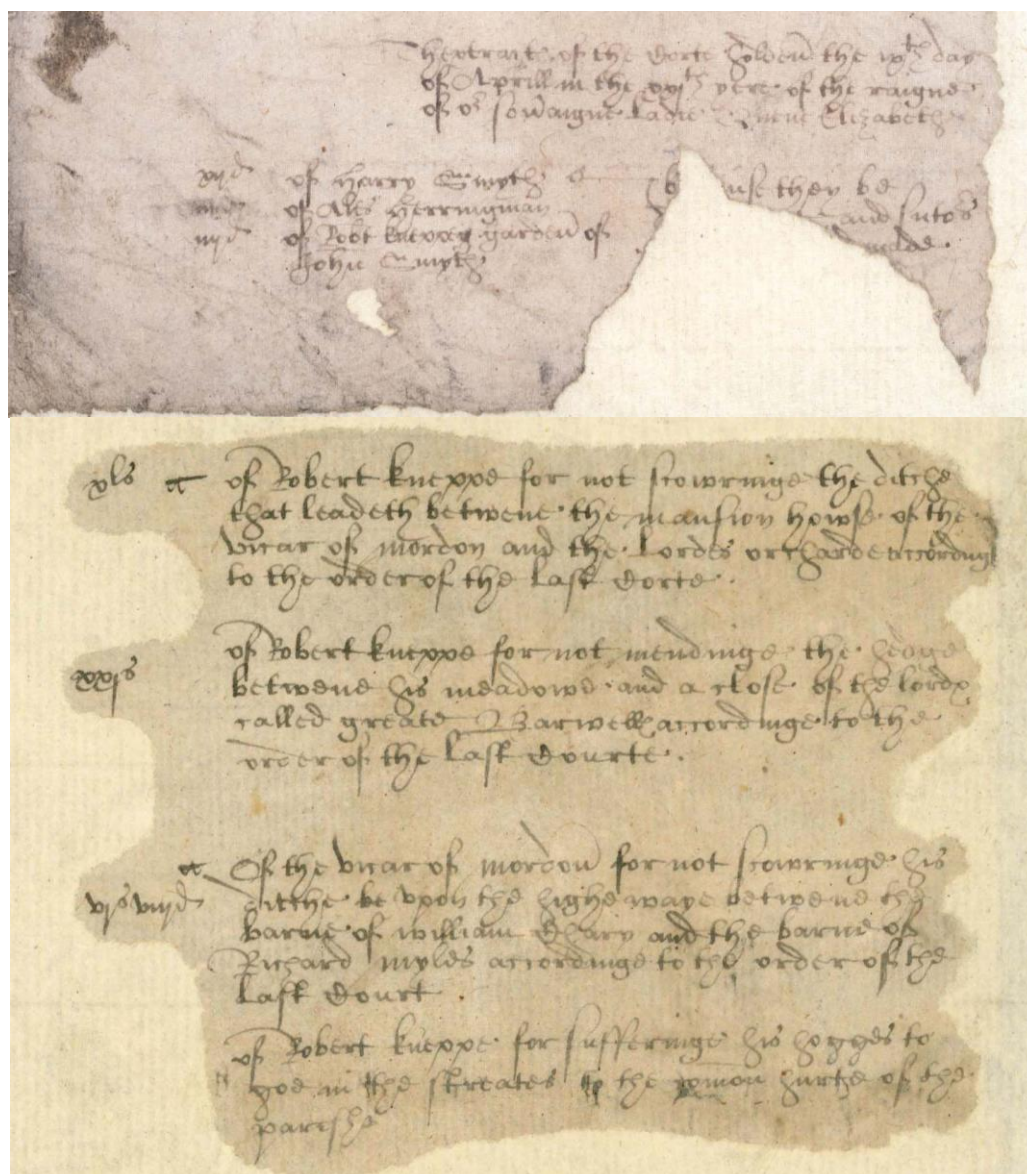 Thextraict of the Corte holden the ixth day
of Aprill in the xxith yere of the raigne
of or sov'aigne Ladie Quene Elizabeth
xijd of Harry Smyth b use they be
iiijd of Ales Herringman and sutors
iiijd of Robt kneppe garden of made
John Smyth
xls of Robert kneppe for not scowringe the ditche
that leadeth betwene the mansion howse of the
vicar of mordon and the Lordes orcharde according
to the order of the Last Corte.
xxs of Robert kneppe for not mendinge the hedge
betwene his meadowe and a close of the lordes
called greate Barwell accordinge to the
order of the Last Courte.
Of the vicar of mordon for not scowringe his
vjs viijd ditche be upon the highe waye betwene the
barne of william and the barne of
Richard myles accordinge to the order of the
Last Court.
of Robert kneppe for sufferinge his hogges to
goe in the streates to the comon hurte of the
parishe